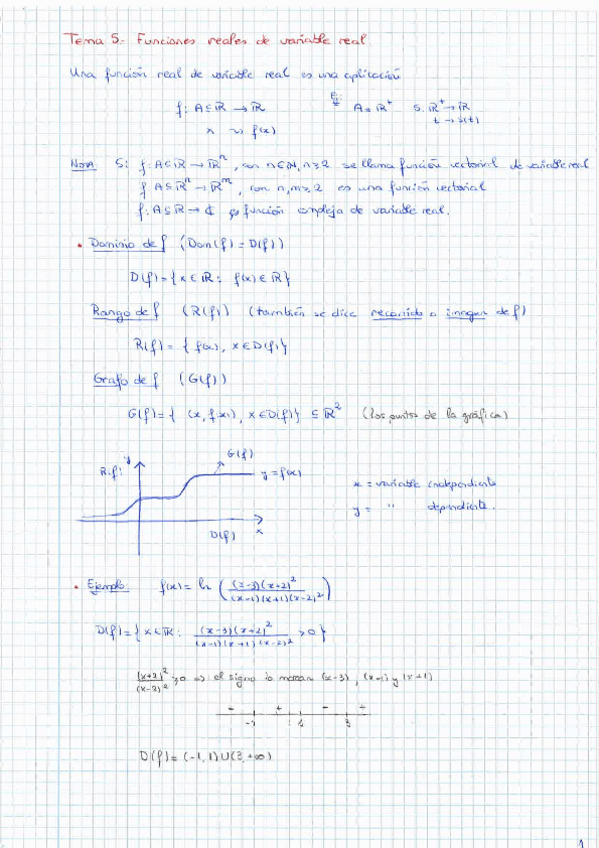 Tema 5.- Funciones reales de variable real.
Una función real de variable real es una aplicación
f: A⊆ℝ → ℝ   Ej: A = ℝ⁺   s: ℝ⁺ → ℝ
x ⤳ f(x)   t → s(t)
Nota: Si f: A⊆ℝ → ℝⁿ, con n∈ℕ, n≥2 se llama función vectorial de variable real
f: A⊆ℝⁿ → ℝᵐ, con n,m≥2 es una función vectorial
f: A⊆ℝ → ℂ es función compleja de variable real.
• Dominio de f (Dom(f) = D(f))
D(f) = {x∈ℝ : f(x)∈ℝ}
Rango de f (R(f)) (también se dice recorrido o imagen de f)
R(f) = {f(x), x∈D(f)}
Grafo de f (G(f))
G(f) = {(x, f(x)), x∈D(f)} ⊆ ℝ² (los puntos de la gráfica)
y G(f)
R(f) y = f(x)
x = variable independiente
y = " dependiente.
D(f) x
• Ejemplo: f(x) = ln ( (x-3)(x+2)² / (x-1)(x+1)(x-2)² )
D(f) = {x∈ℝ : (x-3)(x+2)² / (x-1)(x+1)(x-2)² > 0}
(x+2)² / (x-2)² ≥ 0 ⇒ el signo lo marcan (x-3), (x-1) y (x+1)
- + - +
-1 1 3
D(f) = (-1,1)∪(3,+∞)
1